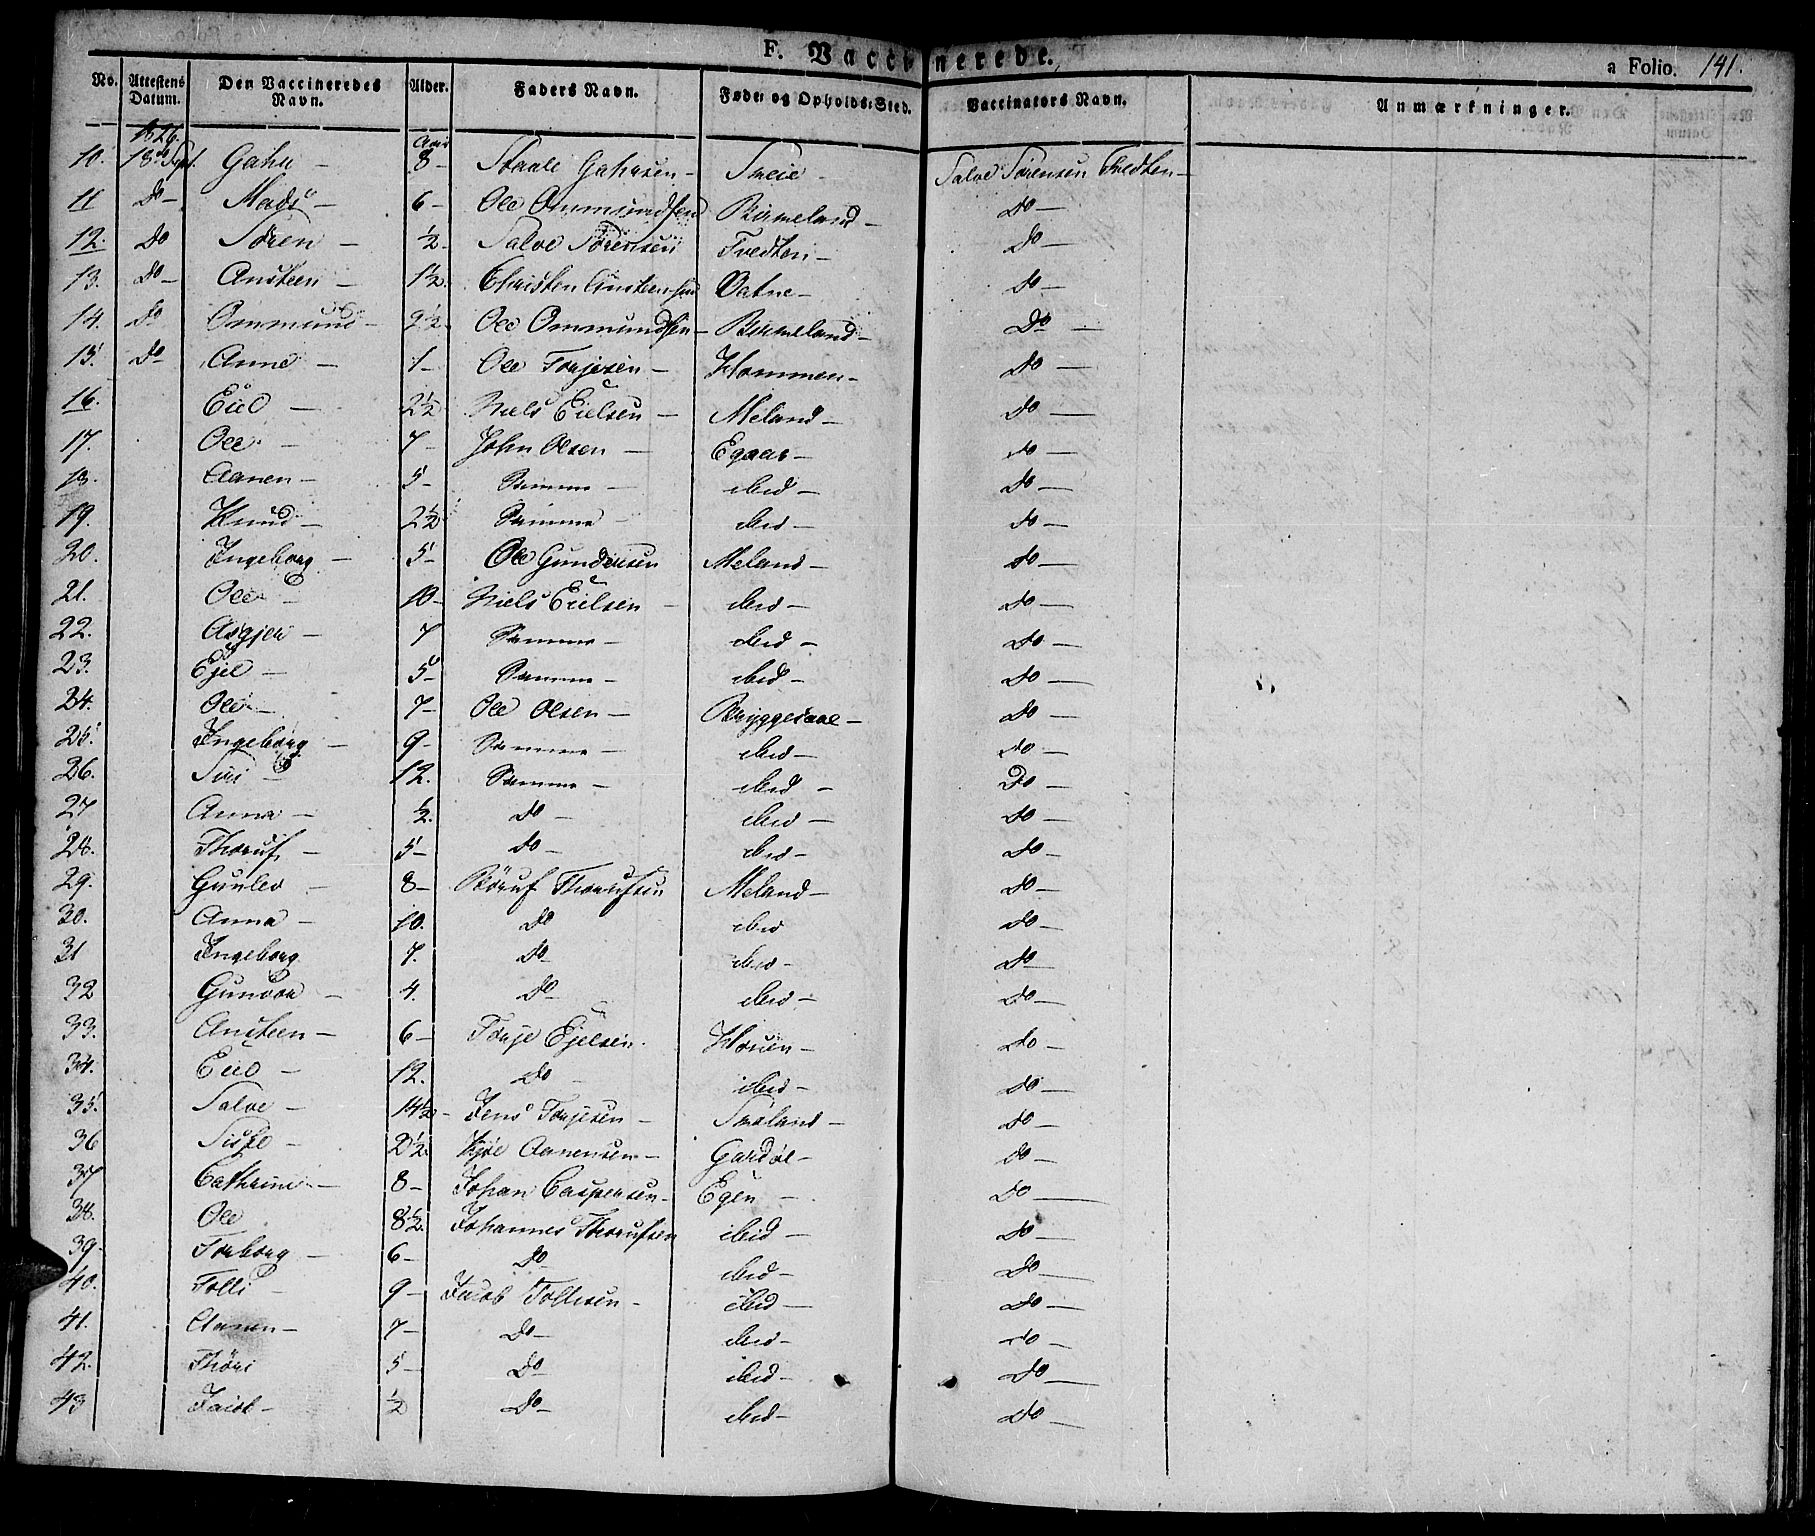 F. Vaccinerede.
a Folio. 141.
No. Attestens Datum. Den Vaccineredes Navn. Alder. Faders Navn. Føde- og Opholds-Sted. Vaccinators Navn. Anmærkninger.
1826. Aar
10. 18de Sept. Gahr — 8 — Staale Gahrsen — Sveie — Salve Sørensen Tvedten —
11 do — Mads — 6 — Ole Ommundsen Birmeland — do —
12. do Søren — ½ — Salve Sørensen Tvedten — do —
13. do — Ansteen — 1½. Christen Ansteensen Vatne — do —
14. do Ommund — 9½ — Ole Ommundsen — Birmeland — do —
15. do Anne — 1 — Ole Torjesen — Hommen — do —
16. Eiel — 2½ Niels Eielsen — Meland — do —
17. Ole — 7 — John Olsen — Egaas — do —
18. Aanen — 5 — Samme — ibid — do —
19. Knud — 2½ Samme — ibid — do —
20. Ingeborg — 5 — Ole Gundersen Meland — do —
21. Ole — 10 — Niels Eielsen — ibid — do —
22. Asgjer — 7 Samme — ibid — do —
23. Ejel — 5 — Samme — ibid — do —
24. Ole — 7 — Ole Olsen — Bryggesaae — do —
25. Ingeborg — 9 — Samme — ibid — do —
26. Siri — 12. Samme — ibid — do —
27 Anna — ½. do — ibid — do —
28. Thoruf — 5 — do — ibid — do —
29. Gunlev — 8 — Röruf Thorufsen Meland — do —
30. Anna — 10. do ibid do —
31 Ingeborg 7. do ibid — do —
32 Gunvor — 4. do ibid — do —
33. Ansteen — 6 — Torje Ejelsen. Horven — do —
34. Eiel — 12. do — ibid — do —
35. Salve — 14½ — Jens Torjesen — Smeland — do —
36 Siske — 2½. Kjøl Aanensen — Gardøl — do —
37 Cathrine — 8 — Johan Caspersen — Egen — do —
38. Ole 8½. Johannes Thorufsen ibid — do —
39. Torborg — 6 — do ibid — do —
40. Tolli — 9 — Jacob Tollisen — ibid — do —
41. Aanen — 7 — do — ibid — do —
42. Thöri 5 — do ibid — do —
43 Jacob — ½ do — ibid — do —